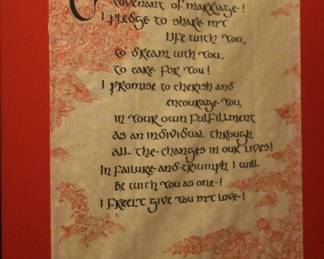 covenant of marriage!
I pledge to share my
life with you,
to dream with you,
to care for you!
I promise to cherish and
encourage you,
in your own fulfillment
as an individual through
all the changes in our lives!
In failure and triumph I will
be with you as one!
I freely give you my love!